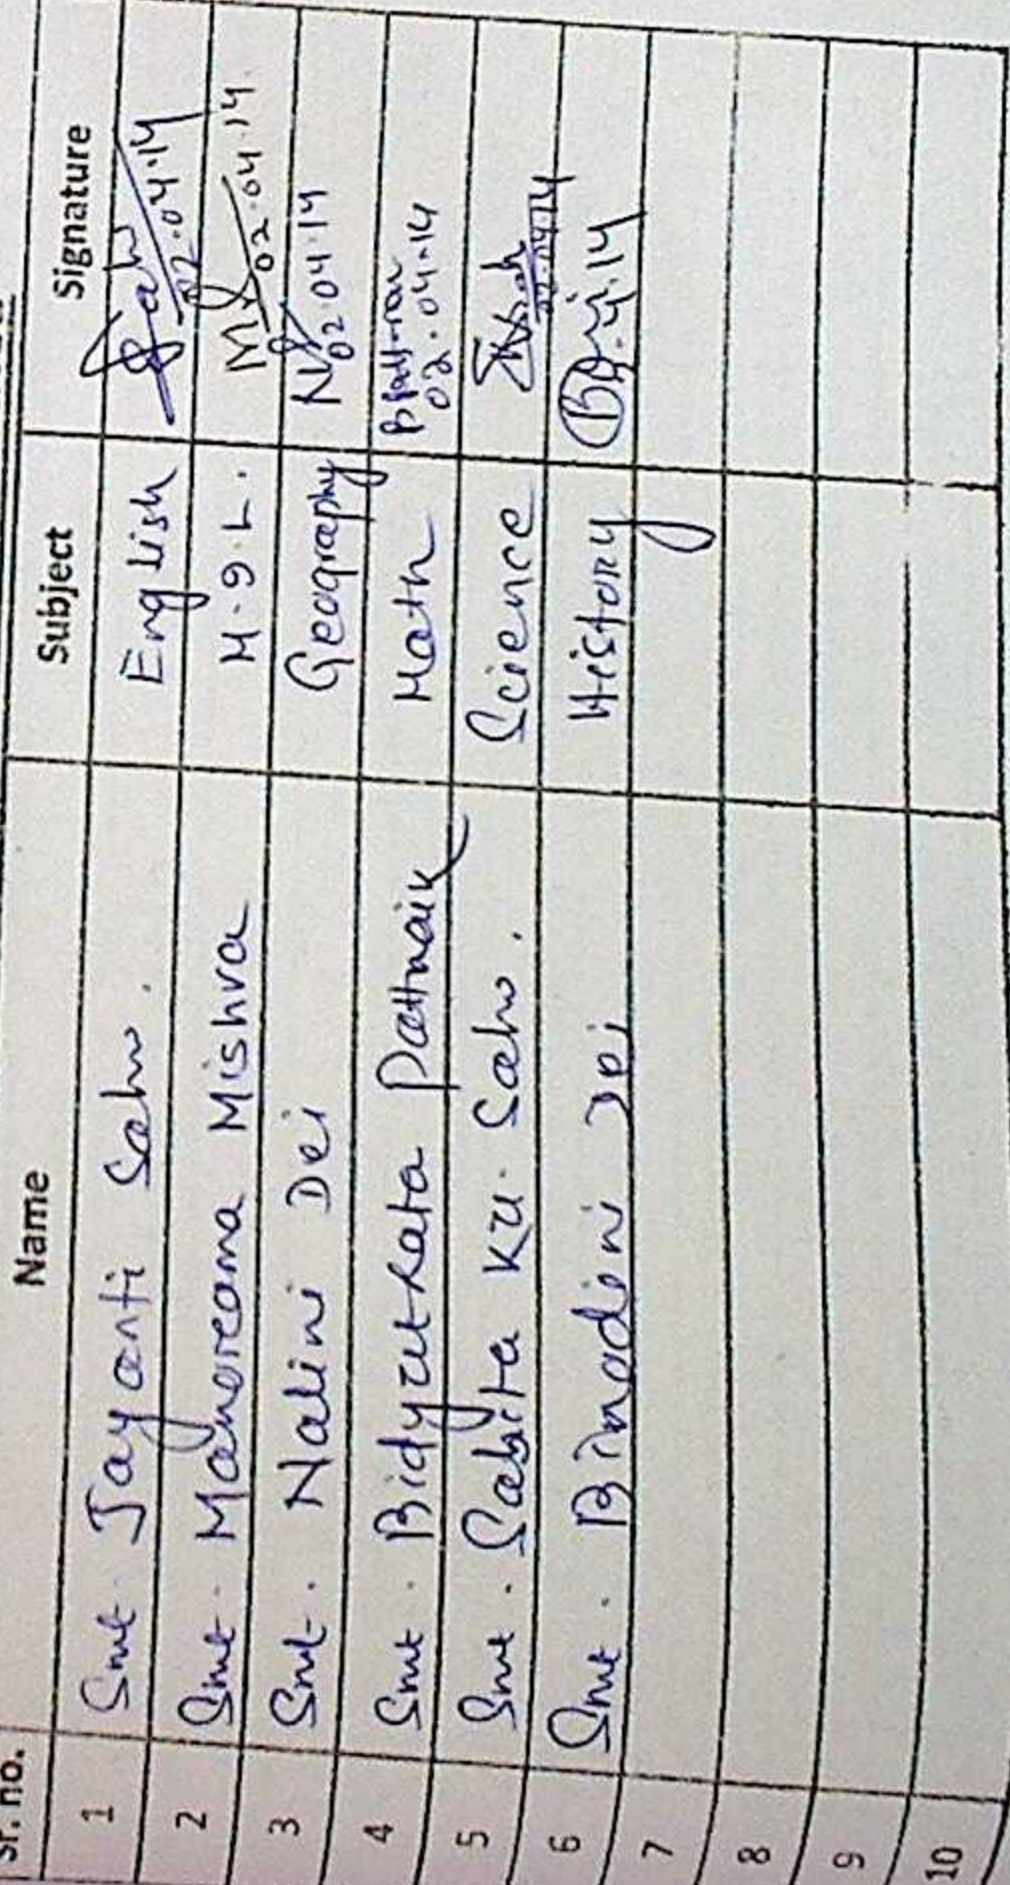 Sr. no. Name Subject Signature
1 Smt. Jayanti Sahu. English Sahu 02.04.14
2 Smt. Manorama Mishra M.I.L. 02.04.14
3 Smt. Nalini Dei Geography 02.04.14
4 Smt. Bidyutlata Pattnaik Math 02.04.14
5 Smt. Sabita Ku. Sahu. Science 02.04.14
6 Smt. Binodini Dei History
7
8
9
10